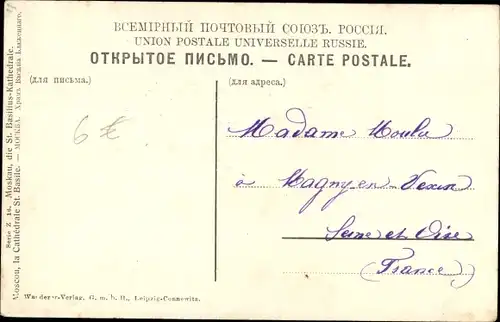 ВСЕМІРНЫЙ ПОЧТОВЫЙ СОЮЗЪ. РОССІЯ.
UNION POSTALE UNIVERSELLE RUSSIE.
ОТКРЫТОЕ ПИСЬМО. — CARTE POSTALE.
(для письма.)
(для адреса.)
6 €
Madame
à Magny en Vexin
Seine et Oise
(France)
Serie Z 14. Moskau, die St. Basilius-Kathedrale.
Moscou, la Cathédrale St. Basile. — МОСКВА. Храмъ Василія Блаженнаго.
Wanderer-Verlag, G. m. b. H., Leipzig-Connewitz.